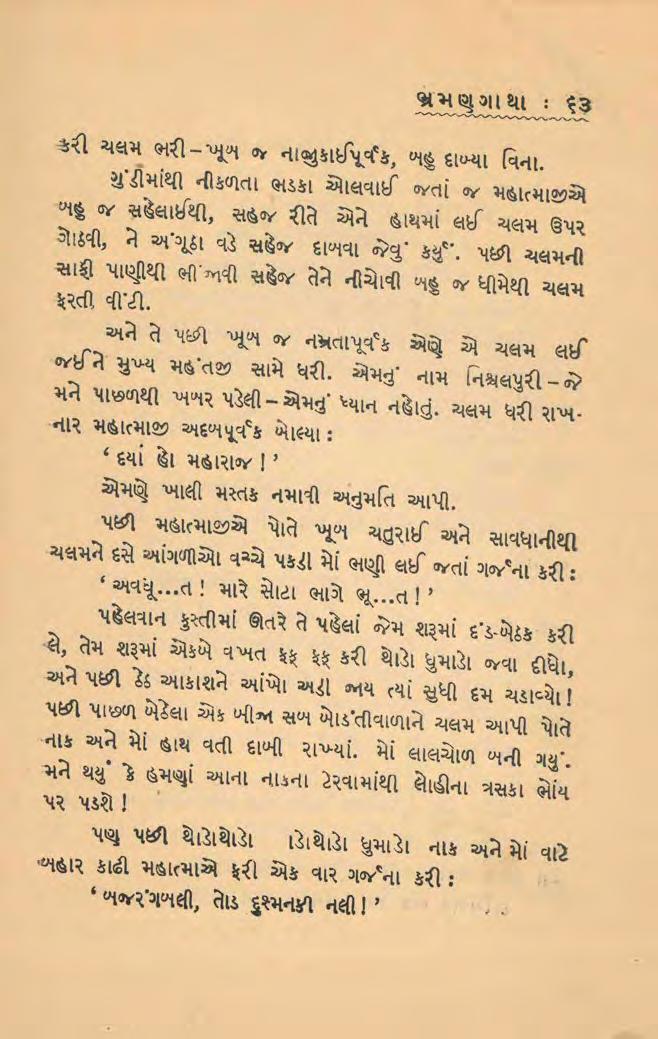 ભ્રમણગાથા : ૬૩
કરી ચલમ ભરી – ખૂબ જ નાજુકાઈપૂર્વક, બહુ દાબ્યા વિના.
ગુંડીમાંથી નીકળતા ભડકા ઓલવાઈ જતાં જ મહાત્માજીએ
બહુ જ સહેલાઈથી, સહજ રીતે એને હાથમાં લઈ ચલમ ઉપર
ગોઠવી, ને અંગૂઠા વડે સહેજ દાબવા જેવું કર્યું. પછી ચલમની
સાફી પાણીથી ભીંજાવી સહેજ તેને નીચોવી બહુ જ ધીમેથી ચલમ
ફરતી વીંટી.
અને તે પછી ખૂબ જ નમ્રતાપૂર્વક એણે એ ચલમ લઈ
જઈને મુખ્ય મહંતજી સામે ધરી. એમનું નામ નિશ્ચલપુરી – જે
મને પાછળથી ખબર પડેલી – એમનું ધ્યાન નહોતું. ચલમ ધરી રાખ-
નાર મહાત્માજી અદબપૂર્વક બોલ્યા :
‘ દયાં હો મહારાજ ! ’
એમણે ખાલી મસ્તક નમાવી અનુમતિ આપી.
પછી મહાત્માજીએ પોતે ખૂબ ચતુરાઈ અને સાવધાનીથી
ચલમને દસે આંગળીઓ વચ્ચે પકડી મોં ભણી લઈ જતાં ગર્જના કરી :
‘ અવધૂ...ત ! મારે સોટા ભાગે ભૂ...ત ! ’
પહેલવાન કુસ્તીમાં ઊતરે તે પહેલાં જેમ શરૂમાં દંડ-બેઠક કરી
લે, તેમ શરૂમાં એકબે વખત ફક્ ફક્ કરી થોડો ધુમાડો જવા દીધો,
અને પછી ઠેઠ આકાશને આંખો અડી જાય ત્યાં સુધી દમ ચડાવ્યો !
પછી પાછળ બેઠેલા એક બીજા સબ બોડંતીવાળાને ચલમ આપી પોતે
નાક અને મોં હાથ વતી દાબી રાખ્યાં. મોં લાલચોળ બની ગયું.
મને થયું કે હમણાં આના નાકના ટેરવામાંથી લોહીના ત્રસકા ભોંય
પર પડશે !
પણ પછી થોડોથોડો ડોથોડો ધુમાડો નાક અને મોં વાટે
બહાર કાઢી મહાત્માએ ફરી એક વાર ગર્જના કરી :
‘ બજરંગબલી, તોડ દુશ્મનકી નલી ! ’